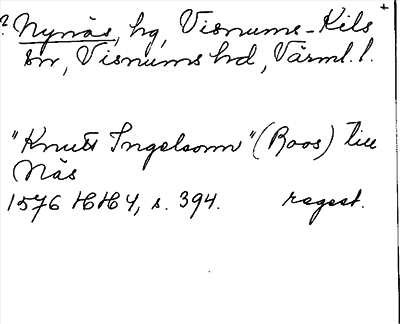 ? Nynäs, hg, Visnums-Kils +
sn, Visnums hd, Värml. l.
"Knutt Ingelsonn" (Roos) till
Näs
1576 HH 4, s. 394. regest.